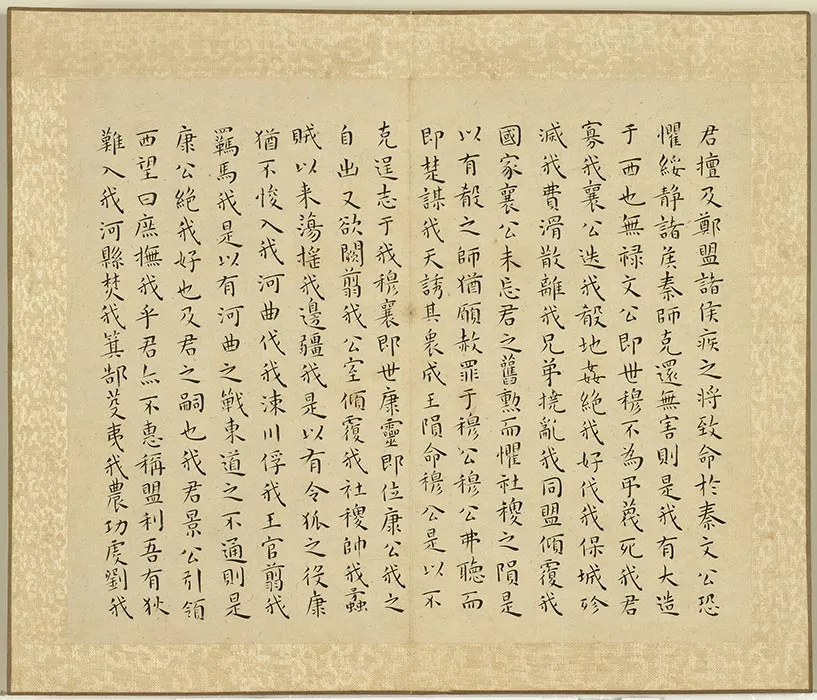 君擅及鄭盟諸侯疾之將致命於秦文公恐
懼綏静諸侯秦師克還無害則是我有大造
于西也無禄文公即世穆不為弔蔑死我君
寡我襄公迭我殽地姦絕我好伐我保城殄
滅我費滑散離我兄弟撓亂我同盟傾覆我
國家襄公未忘君之舊勲而懼社稷之隕是
以有殽之師猶願赦罪于穆公穆公弗聽而
即楚謀我天誘其衷成王隕命穆公是以不
克逞志于我穆襄即世康靈即位康公我之
自出又欲闕翦我公室傾覆我社稷帥我蟊
賊以来蕩摇我邊疆我是以有令狐之役康
猶不悛入我河曲伐我涑川俘我王官翦我
羈馬我是以有河曲之戰東道之不通則是
康公絕我好也及君之嗣也我君景公引領
西望曰庶撫我乎君亦不惠稱盟利吾有狄
難入我河縣焚我箕郜芟夷我農功虔劉我